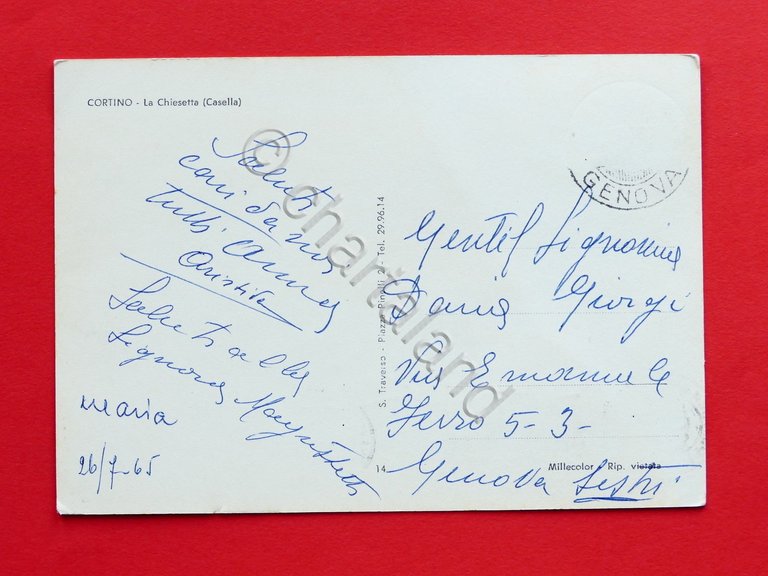 CORTINO - La Chiesetta (Casella)
Saluti
cari da noi
tutti Anna
Saluti alla
Signora
maria
26/7-65
S. Traverso - Piazza Pinelli 2 - Tel. 29.96.14
GENOVA
Gentil Signorina
Daria Giorgi
Via Emanuele
5-3-
Genova Sestri
14
Millecolor - Rip. vietata
© chartaland